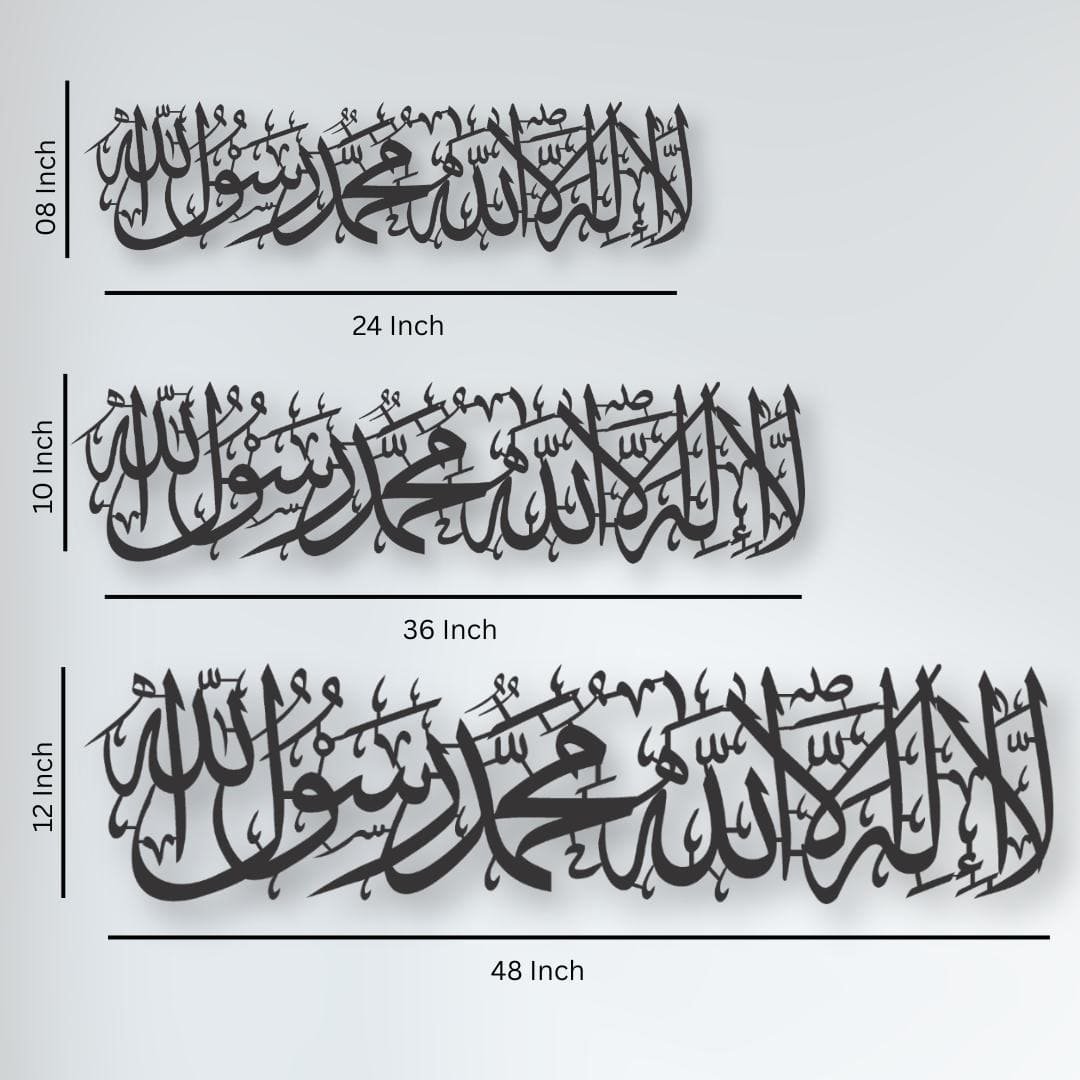 لا إله إلا الله محمد رسول الله
08 Inch
24 Inch
لا إله إلا الله محمد رسول الله
10 Inch
36 Inch
لا إله إلا الله محمد رسول الله
12 Inch
48 Inch